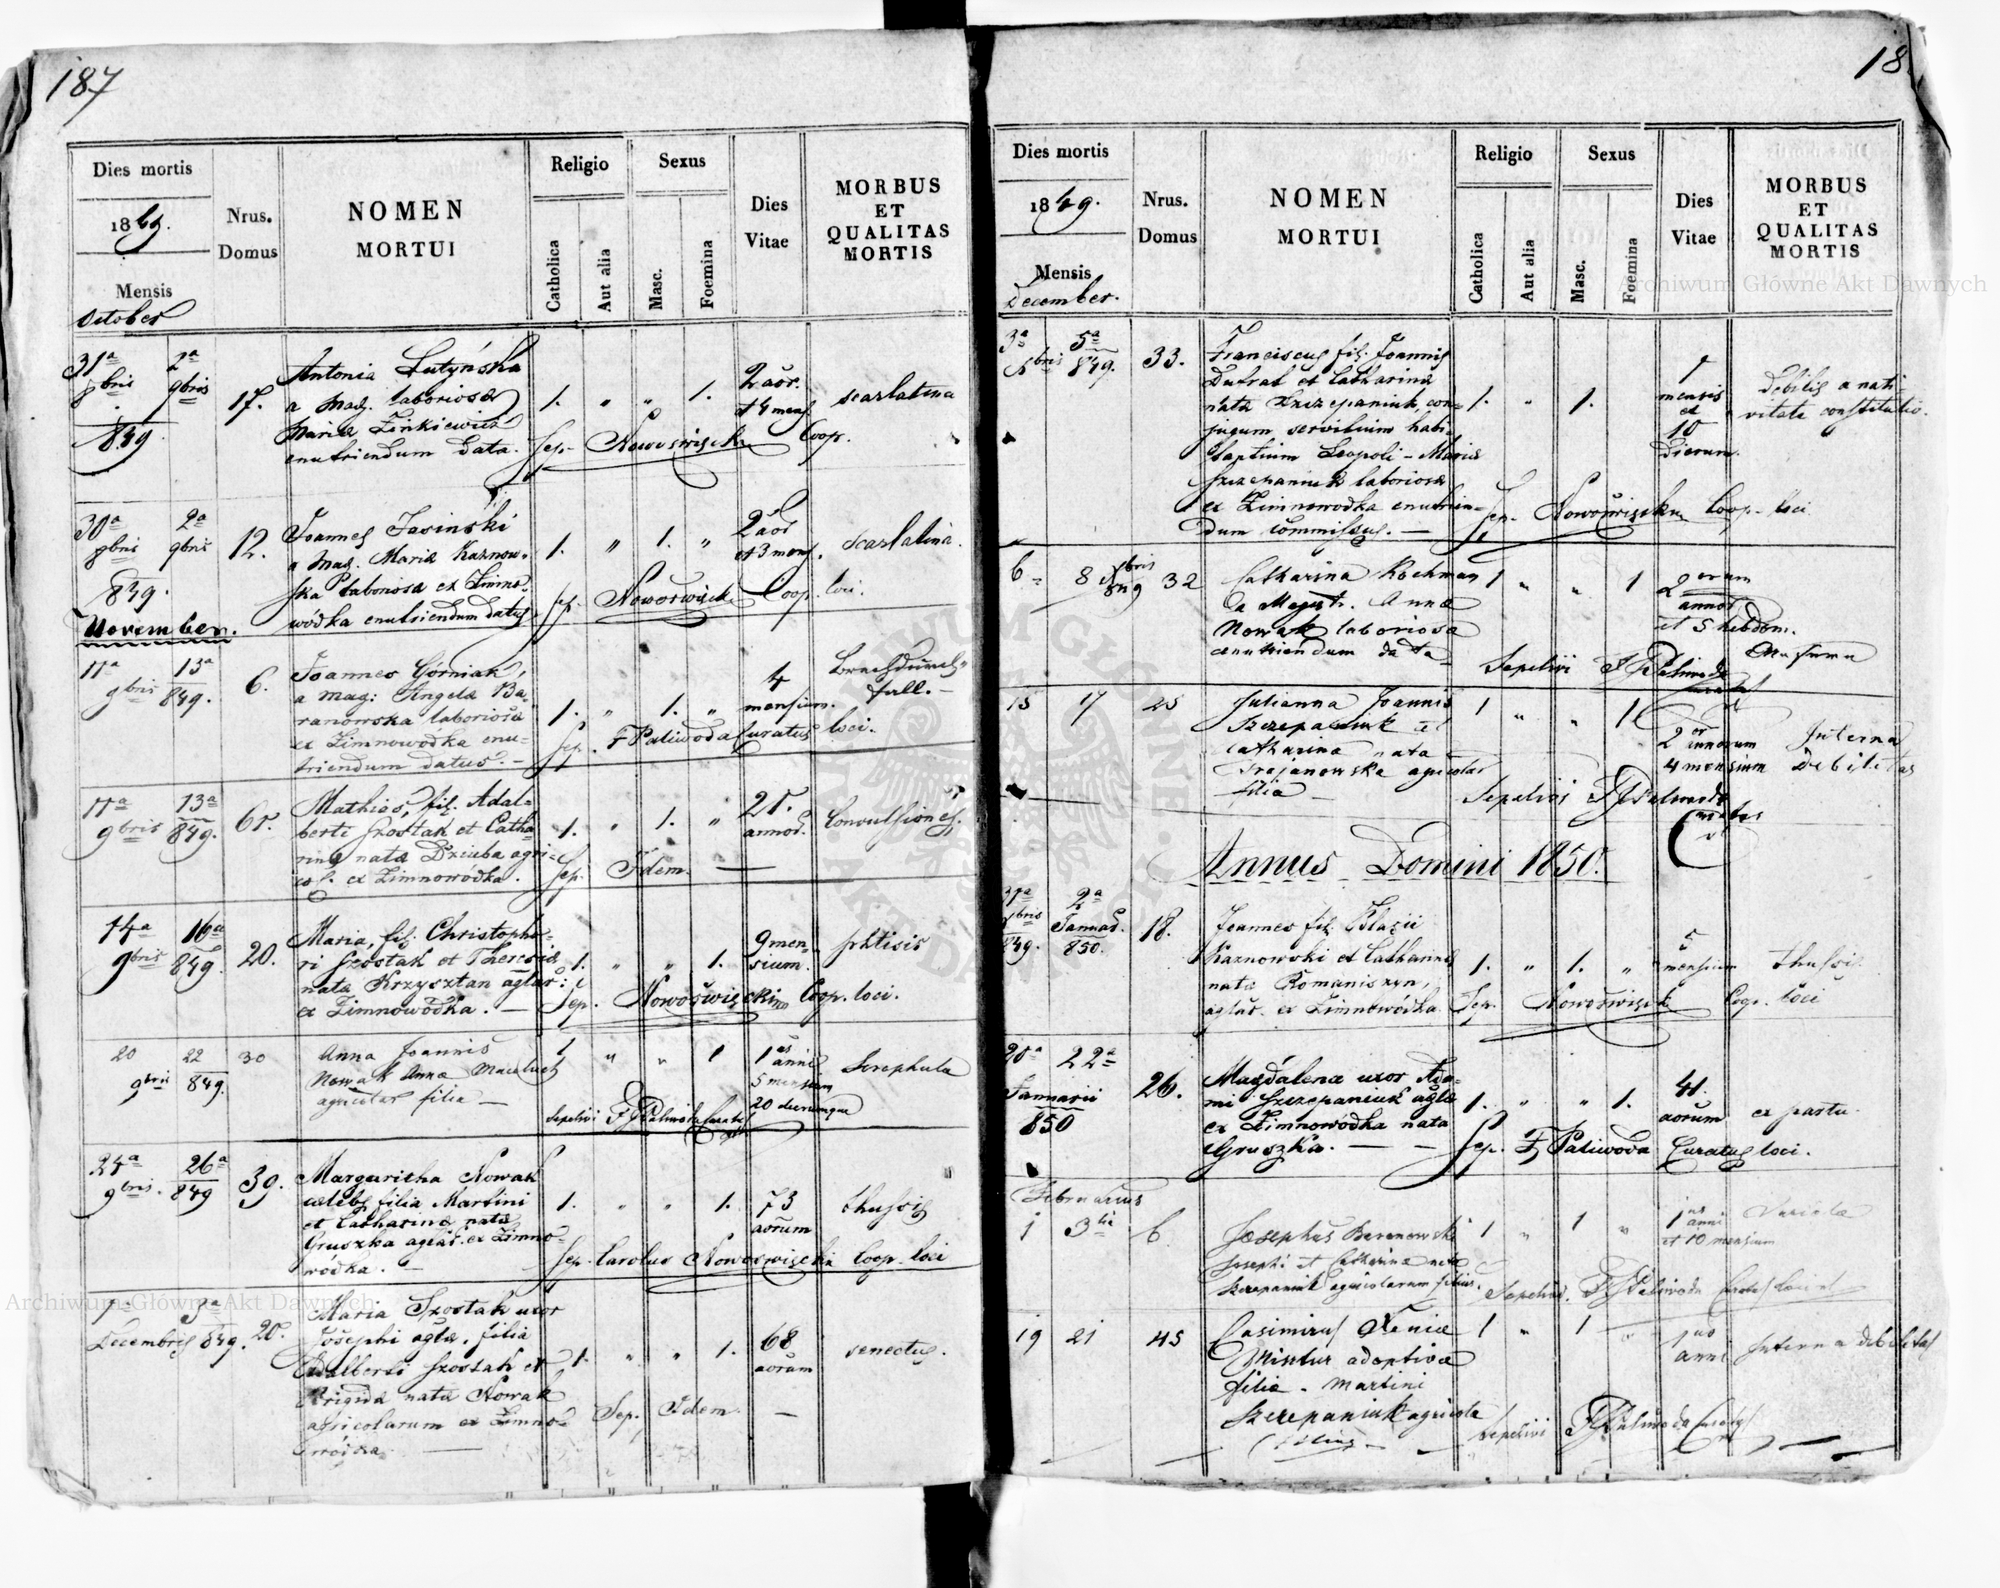 187
Dies mortis
1849.
Mensis
October
Nrus.
Domus
NOMEN
MORTUI
Religio
Catholica
Aut alia
Sexus
Masc.
Foemina
Dies
Vitae
MORBUS
ET
QUALITAS
MORTIS
31a 2a
8bris 9bris
849.
17.
Antonia Lutyńska
a Mag. laboriosa
Maria Zinkiewicz
enutriendum data.
1. " " 1.
2 aor.
et 4 mens
scarlatina
Sep. Nowoświęcki Coop.
30a 2a
8bris 9bris
849.
12.
Joannes Jasiński
a Mag. Maria Kaznow-
ska laboriosa ex Zimno-
wódka enutriendum datus
1. " 1. "
2 aor
et 3 mens.
scarlatina.
Sep. Nowoświęcki Coop. loci.
November.
11a 13a
9bris 849.
6.
Joannes Górniak,
a mag: Angela Ba-
ranowska laboriosa
ex Zimnowódka enu-
triendum datus. -
1. " 1. "
4
mensium.
Sep. F Paliwoda Curatus loci.
11a 13a
9bris 849.
61.
Mathias, fil. Adal-
berti Szostak et Catha-
rina nata Dziuba agri-
col. ex Zimnowódka.
1. " 1. "
21.
annor.
Convulsiones.
Sep. Idem. —
14a 16a
9bris 849.
20.
Maria, fil. Christopho-
ri Szostak et Theresia
nata Krzysztan aglar:
ex Zimnowódka. —
1. " " 1.
9 men-
sium.
phtisis
Sep. Nowoświęcki Coop. loci.
20 22
9bris 849.
30
Anna Joannis
Nowak Anna Maculuch
agricolar filia —
1 " " 1
1us anni
5 mensium
20 dierumque
Scrophula
Sepelivi F Paliwoda Curatus
24a 26a
9bris. 849
39.
Margaritha Nowak
caelebs filia Martini
et Catharina nata
Gruszka aglar. ex Zimno-
wódka. —
1. " " 1.
73
aorum
thussis
Sep. Carolus Nowoświęcki Coop. loci
1a 3a
Decembris 849.
20.
Maria Szostak uxor
Josephi agla, filia
Adalberti Szostak et
Brigida nata Nowak
agricolarum ex Zimno-
wódka. —
1. " " 1.
68
aorum
senectus.
Sep. Idem. —
18
Dies mortis
1849.
Mensis
December.
Nrus.
Domus
NOMEN
MORTUI
Religio
Catholica
Aut alia
Sexus
Masc.
Foemina
Dies
Vitae
MORBUS
ET
QUALITAS
MORTIS
3a 5a
Xbris 849.
33.
Franciscus fil. Joannis
Dufrat et Catharina
nata Szczepaniuk, con-
jugum servilium habi-
Leopoli - Maria
Szczepaniuk laboriosa
ex Zimnowodka enutrien-
dum commissus. —
1. " 1.
1
mensis
et
10
dierum.
Debilis a nati-
vitate constitutio.
Sep. Nowoświęcki Coop. loci
6 8 Xbris
849
32
Catharina Kochman
a Magistr. Anna
Nowak laboriosa
aenutriendum data
1 " " 1
2 orum
annor
et 5 hebdom.
Sepelivi F Paliwoda
15 17
25
Julianna Joannis
Szczepaniuk et
Catharina nata
Trojanowska agricolar
filia —
1 " " 1
2 or
annorum
4 mensium
Interna
Debilitas
Sepelivi F Paliwoda
Annus Domini 1850.
31a 2a
Xbris Januar.
849. 850.
18.
Joannes fil. Blasii
Kaznowski et Catharina
nata Romaniszyn,
aglar. ex Zimnowódka
1. " 1. "
5
mensium
thussis.
Sep. Nowoświęcki Coop. loci
20a 22a
Januarii
850
26.
Magdalena uxor Ada-
mi Szczepaniuk agla
ex Zimnowódka nata
Gruszka. — —
1. " " 1.
41.
aorum
ex partu.
Sep. F Paliwoda Curatus loci.
Februarius
1 3tia
6
Josephus Baranowski
Josephi et Catharina nata
Szczepaniuk agricolarum filius.
1 " 1 "
1us
anni
et 10 mensium
Variola
Sepelivi. F Paliwoda
19 21
45
Casimirus Xenia
adoptiva
filia - Martini
Szczepaniuk agricola
filius —
1 " 1 "
1us
anni
Interna debilitas
Sepelivi F Paliwoda
Archiwum Główne Akt Dawnych
Archiwum Główne Akt Dawnych